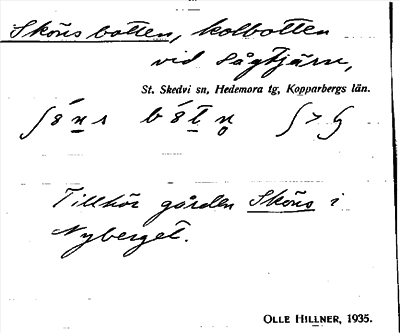 Sköns botten, kolbotten
vid Sågtjärn,
St. Skedvi sn, Hedemora tg, Kopparbergs län.
Tillhör gården Sköns i
Nyberget.
OLLE HILLNER, 1935.